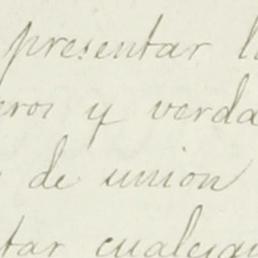 presentar l
eros y verda
de union
tar cualesqu